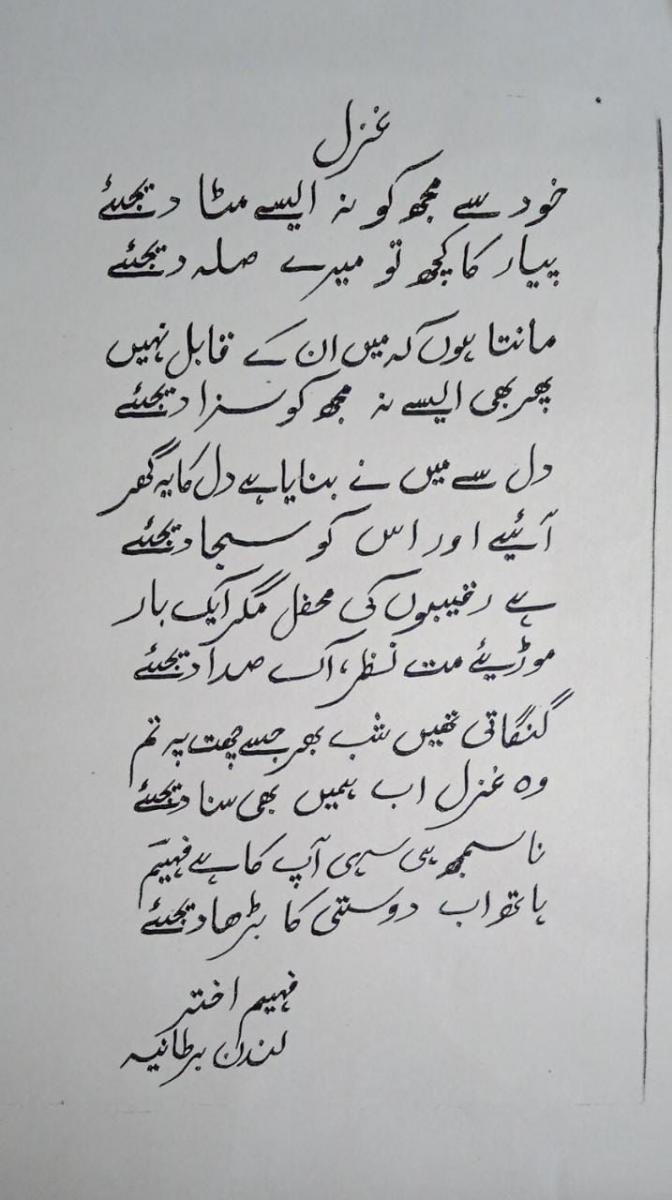 غزل
خود سے مجھ کو نہ ایسے مٹا دیجئے
پیار کا کچھ تو میرے صلہ دیجئے
مانتا ہوں کہ میں ان کے قابل نہیں
پھر بھی ایسے نہ مجھ کو سزا دیجئے
دل سے میں نے بنایا ہے دل کا یہ گھر
آئیے اور اس کو سجا دیجئے
ہے رقیبوں کی محفل مگر ایک بار
موڑیئے مت نظر، اک صدا دیجئے
گنگناتی تھیں شب بھر جسے چھت پہ تم
وہ غزل اب ہمیں بھی سنا دیجئے
نا سمجھ ہی سہی آپ کا ہے فہیمؔ
ہاتھ اب دوستی کا بڑھا دیجئے
فہیم اختر
لندن برطانیہ